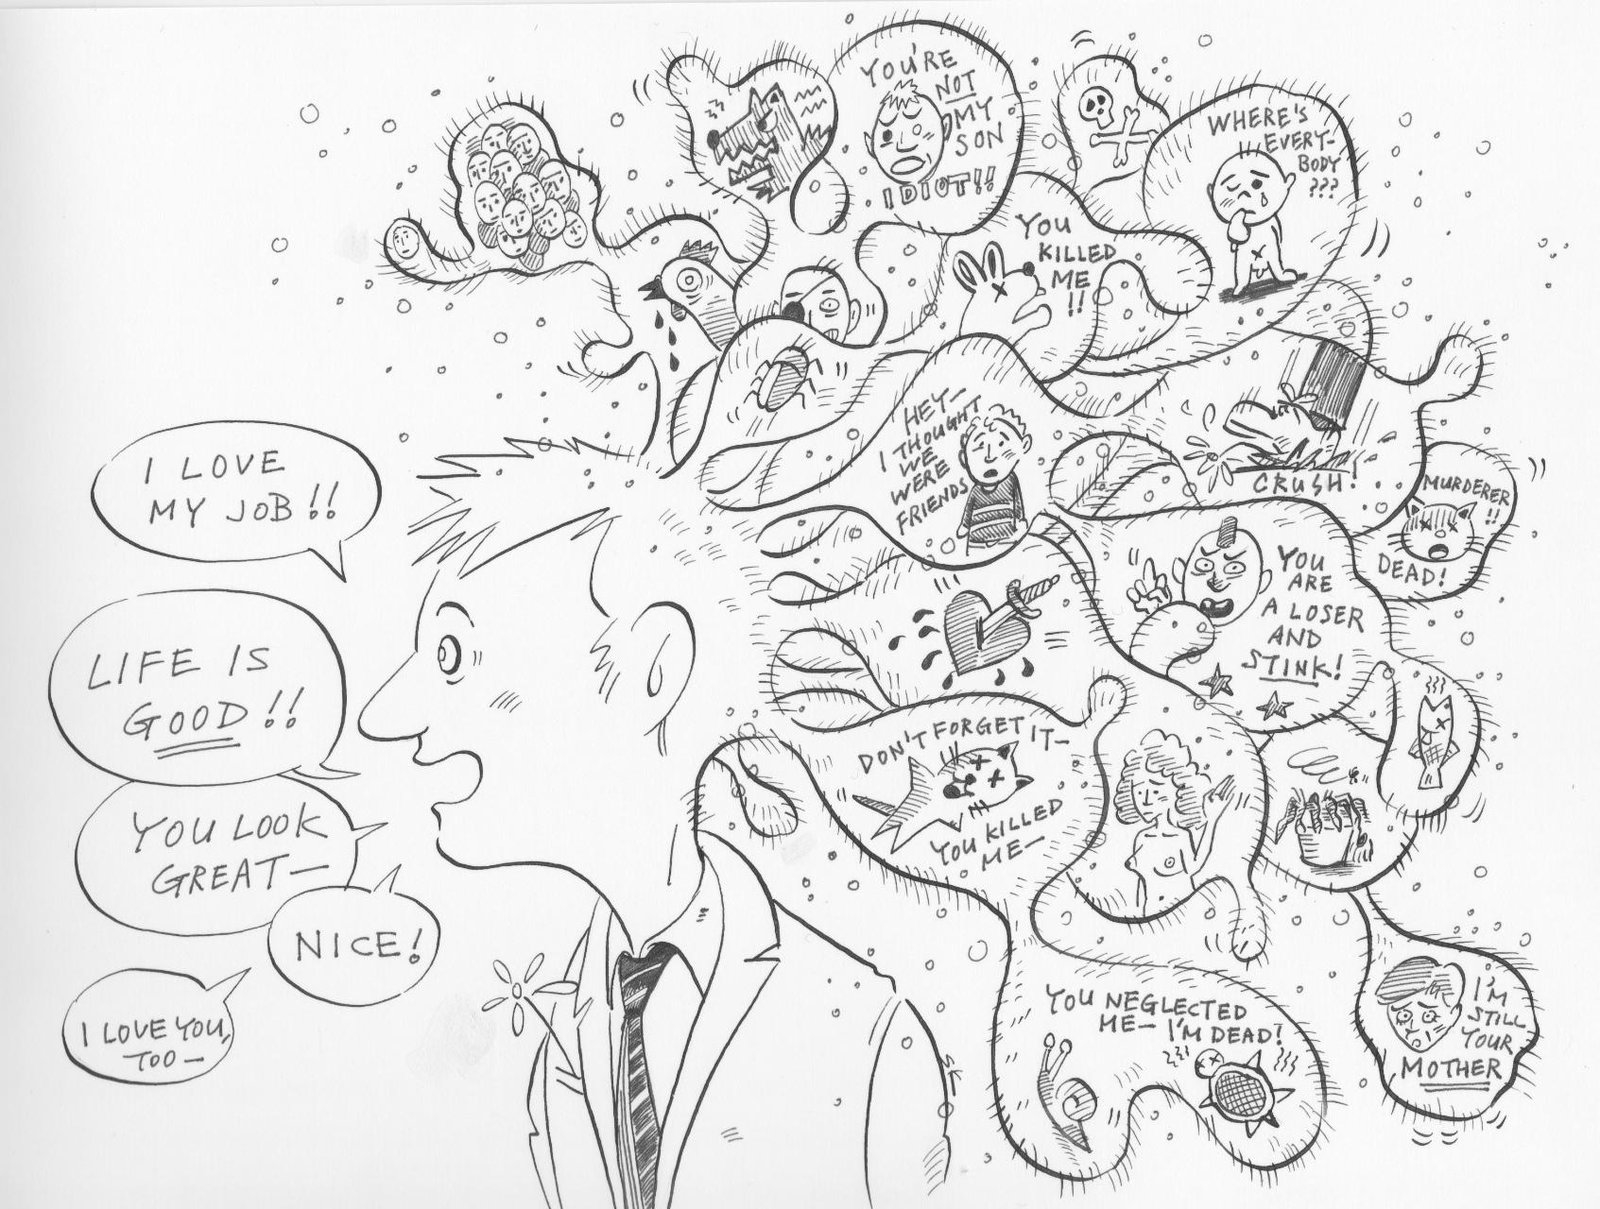 I LOVE
MY JOB!!
LIFE IS
GOOD!!
YOU LOOK
GREAT—
NICE!
I LOVE YOU,
TOO—
YOU'RE
NOT
MY
SON
IDIOT!!
WHERE'S
EVERY-
BODY
???
YOU
KILLED
ME
!!
HEY—
I THOUGHT
WE
WERE
FRIENDS
CRUSH!
MURDERER
!!
DEAD!
YOU
ARE
A LOSER
AND
STINK!
DON'T FORGET IT—
YOU KILLED
ME—
YOU NEGLECTED
ME— I'M DEAD!
I'M
STILL
YOUR
MOTHER
SK